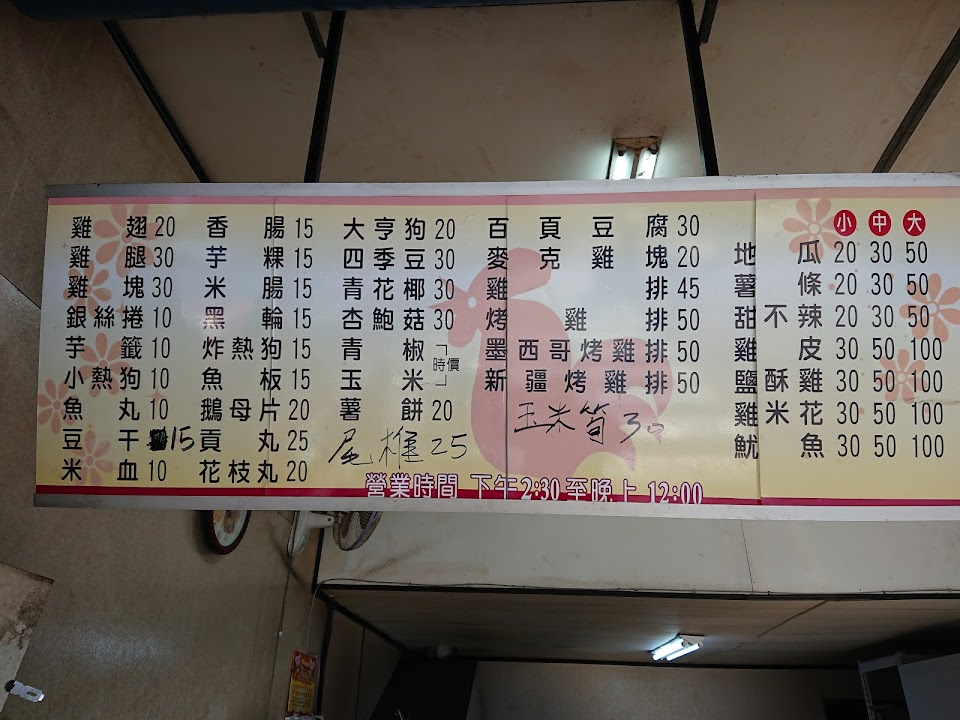 雞翅20
雞腿30
雞塊30
銀絲捲10
芋籤10
小熱狗10
魚丸10
豆干15
米血10
香腸15
芋粿15
米腸15
黑輪15
炸熱狗15
魚板15
鵝母片20
貢丸25
花枝丸20
大亨狗20
四季豆30
青花椰30
杏鮑菇30
青椒
玉米
時價
薯餅20
尾椎25
百頁豆腐30
麥克雞塊20
雞排45
烤雞排50
墨西哥烤雞排50
新疆烤雞排50
玉米筍30
小 中 大
地瓜 20 30 50
薯條 20 30 50
甜不辣 20 30 50
雞皮 30 50 100
鹽酥雞 30 50 100
雞米花 30 50 100
魷魚 30 50 100
營業時間 下午2:30至晚上12:00